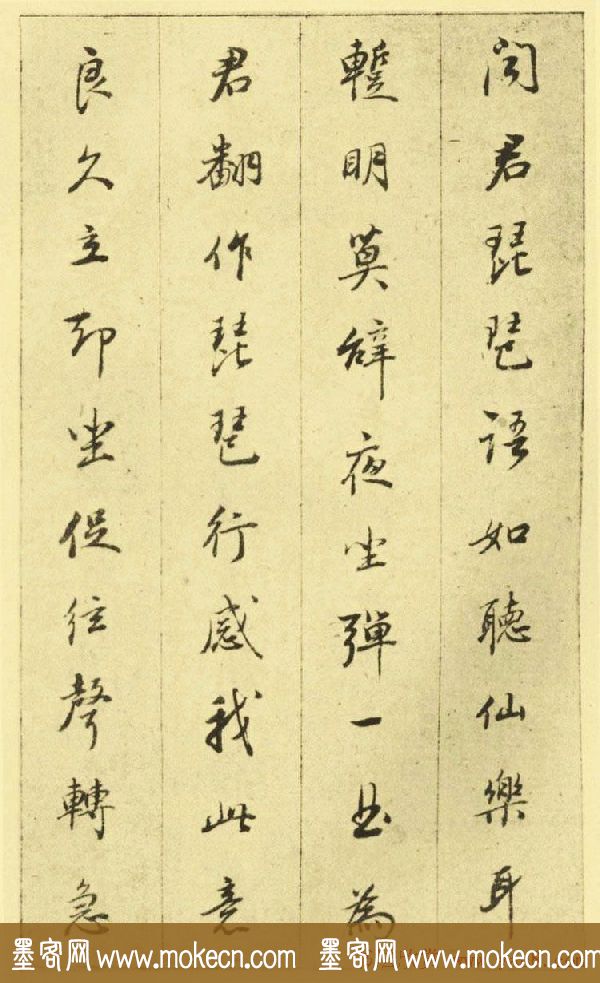 聞君琵琶語如聽仙樂耳
蹔明莫辞夜坐彈一曲為
君翻作琵琶行感我此意
良久立却坐促絃聲轉急
墨客网 www.mokecn.com 墨客网 www.mokecn.com